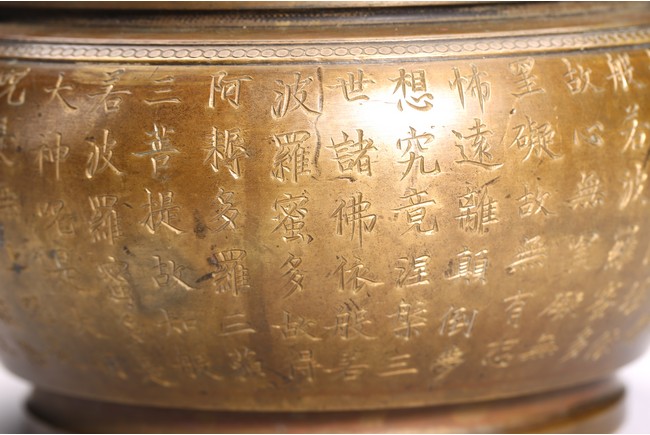 般若波羅
故心無罣礙無
罣礙故無有恐
怖遠離顛倒夢
想究竟涅槃三
世諸佛依般若
波羅蜜多故得
阿耨多羅三藐
三菩提故知般
若波羅蜜多是
大神咒是
咒